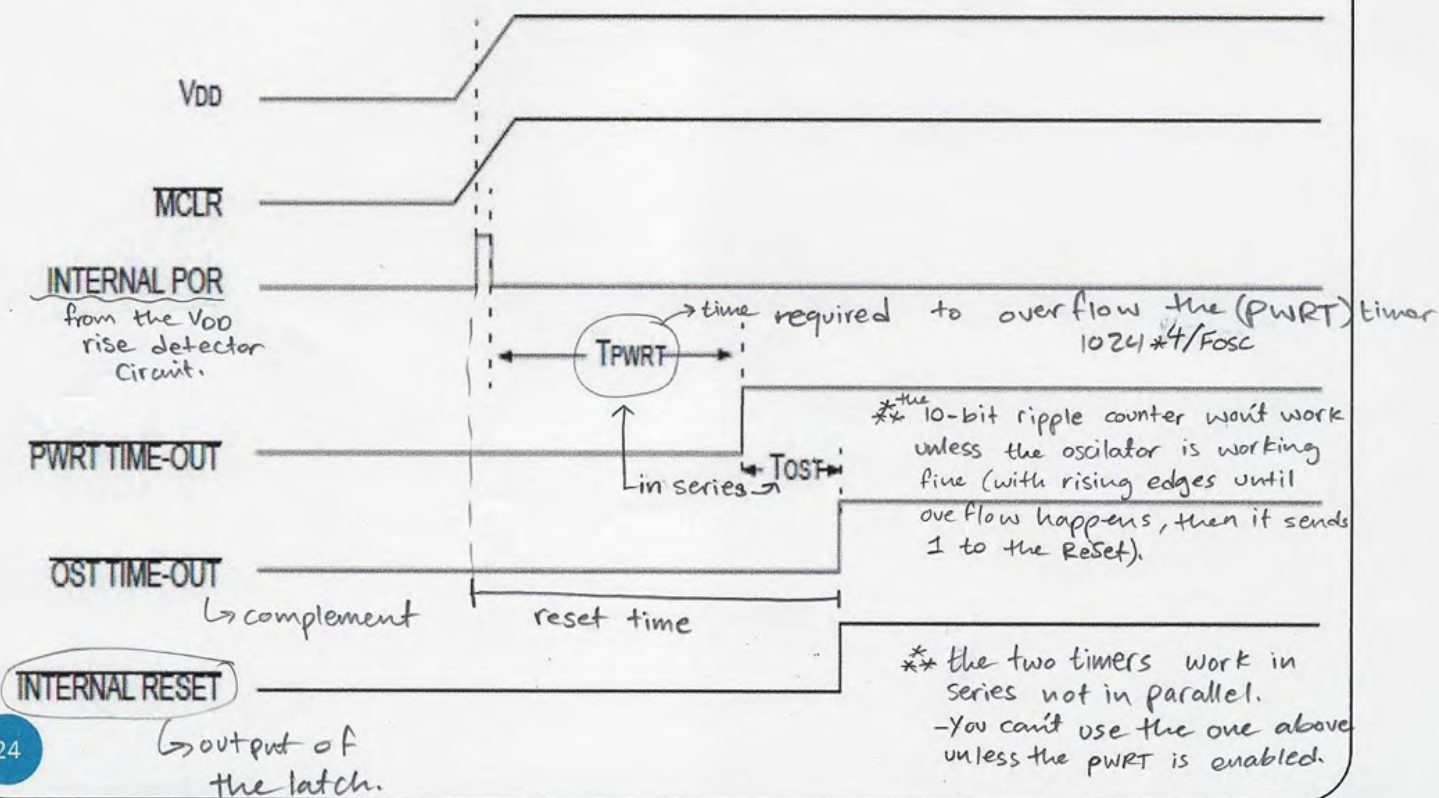 VDD
MCLR
INTERNAL POR
from the VDD
rise detector
Circuit.
→ time required to overflow the (PWRT) timer
1024*4/Fosc
TPWRT
PWRT TIME-OUT
in series
TOST
** the 10-bit ripple counter won't work
unless the oscilator is working
fine (with rising edges until
oveflow happens, then it sends
1 to the ReSet).
OST TIME-OUT
↳ complement
reset time
INTERNAL RESET
↳ output of
the latch.
** the two timers work in
series not in parallel.
-You can't use the one above
unless the PWRT is enabled.
24